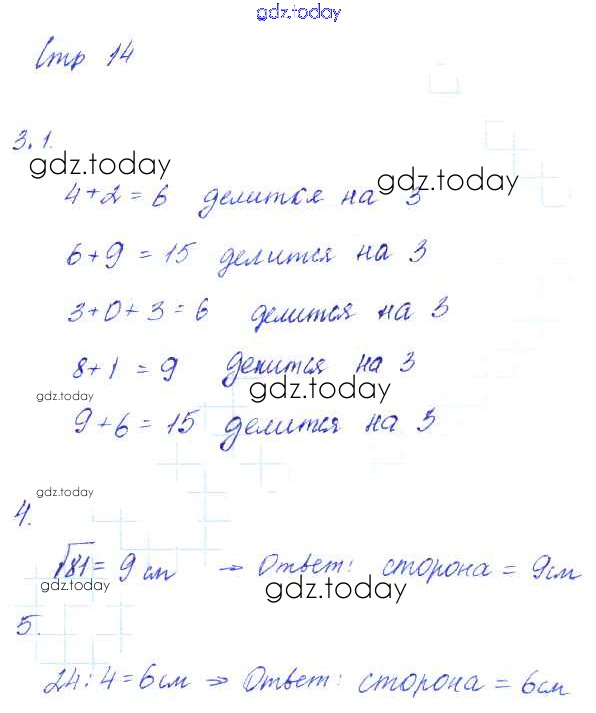 gdz.today
Стр 14
3.1.
gdz.today
gdz.today
4+2 = 6 делится на 3
6+9 = 15 делится на 3
3+0+3 = 6 делится на 3
8+1 = 9 делится на 3
gdz.today
gdz.today
9+6 = 15 делится на 3
gdz.today
4.
√81 = 9 см → Ответ: сторона = 9см
gdz.today
gdz.today
5.
24:4=6см ⇒ Ответ: сторона = 6см